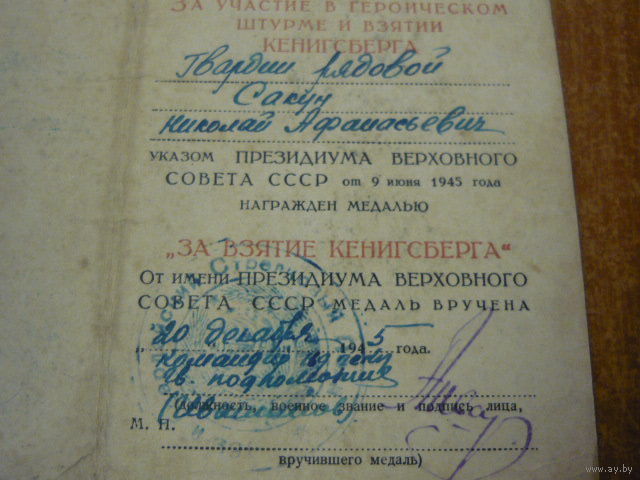 ЗА УЧАСТИЕ В ГЕРОИЧЕСКОМ
ШТУРМЕ И ВЗЯТИИ
КЕНИГСБЕРГА
Гвардии рядовой
Сакун
Николай Афанасьевич
УКАЗОМ ПРЕЗИДИУМА ВЕРХОВНОГО
СОВЕТА СССР от 9 июня 1945 года
НАГРАЖДЕН МЕДАЛЬЮ
„ЗА ВЗЯТИЕ КЕНИГСБЕРГА“
От имени ПРЕЗИДИУМА ВЕРХОВНОГО
СОВЕТА СССР МЕДАЛЬ ВРУЧЕНА
„20 декабря 1945 года.
командир
гв. подполковник
(должность, военное звание и подпись лица,
М. П.
вручившего медаль)
www.ay.by